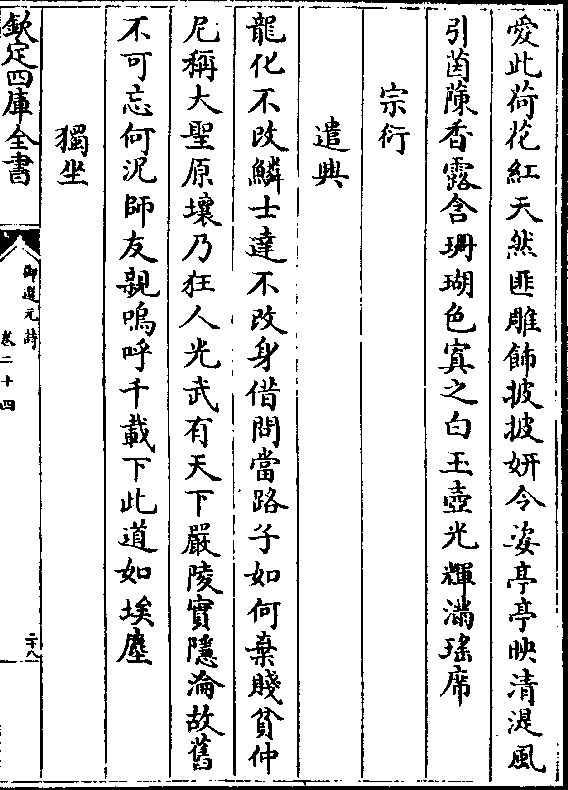 愛此荷花紅天然匪雕飾披披妍令姿亭亭映清湜風
引茵蔯香露含珊瑚色寘之白玉壺光輝滿瑤席
宗衍
遣興
龍化不改鱗士達不改身借問當路子如何棄賤貧仲
尼稱大聖原壤乃狂人光武有天下嚴陵實隱淪故舊
不可忘何況師友親嗚呼千載下此道如埃塵
獨坐
欽定四庫全書
御選元詩
卷二十四
二十八